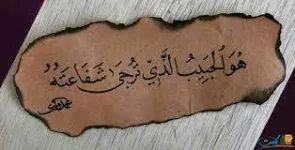 هُوَ الحَبِيبُ الَّذِي تُرْجَى شَفَاعَتُهُ